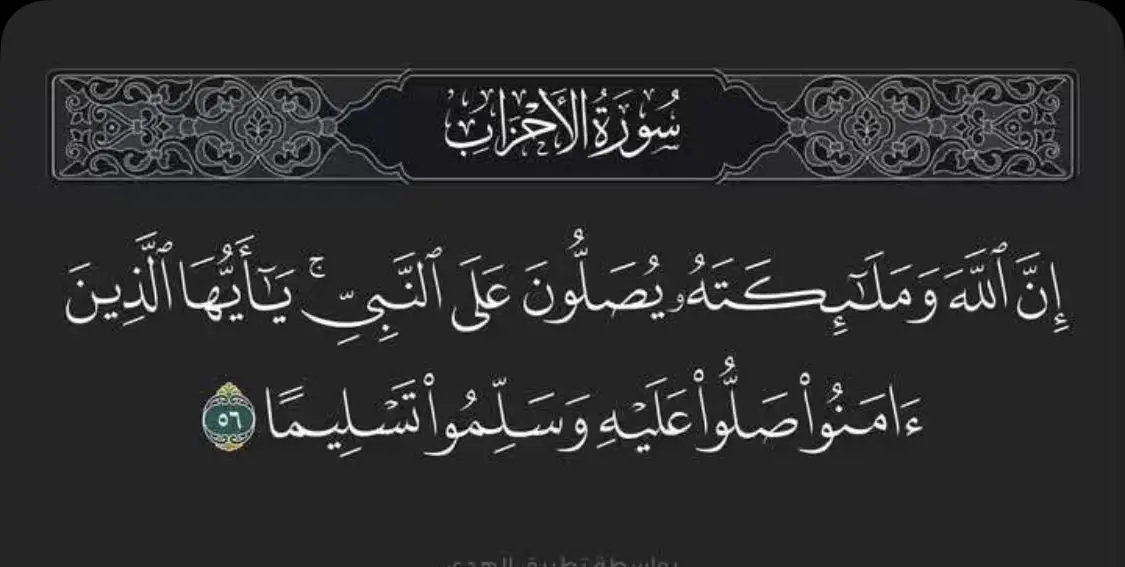 سُورَةُ الأَحْزَاب
إِنَّ ٱللَّهَ وَمَلَـٰٓئِكَتَهُۥ يُصَلُّونَ عَلَى ٱلنَّبِىِّ ۚ يَـٰٓأَيُّهَا ٱلَّذِينَ
ءَامَنُوا۟ صَلُّوا۟ عَلَيْهِ وَسَلِّمُوا۟ تَسْلِيمًا ٥٦
بواسطة تطبيق الهدى